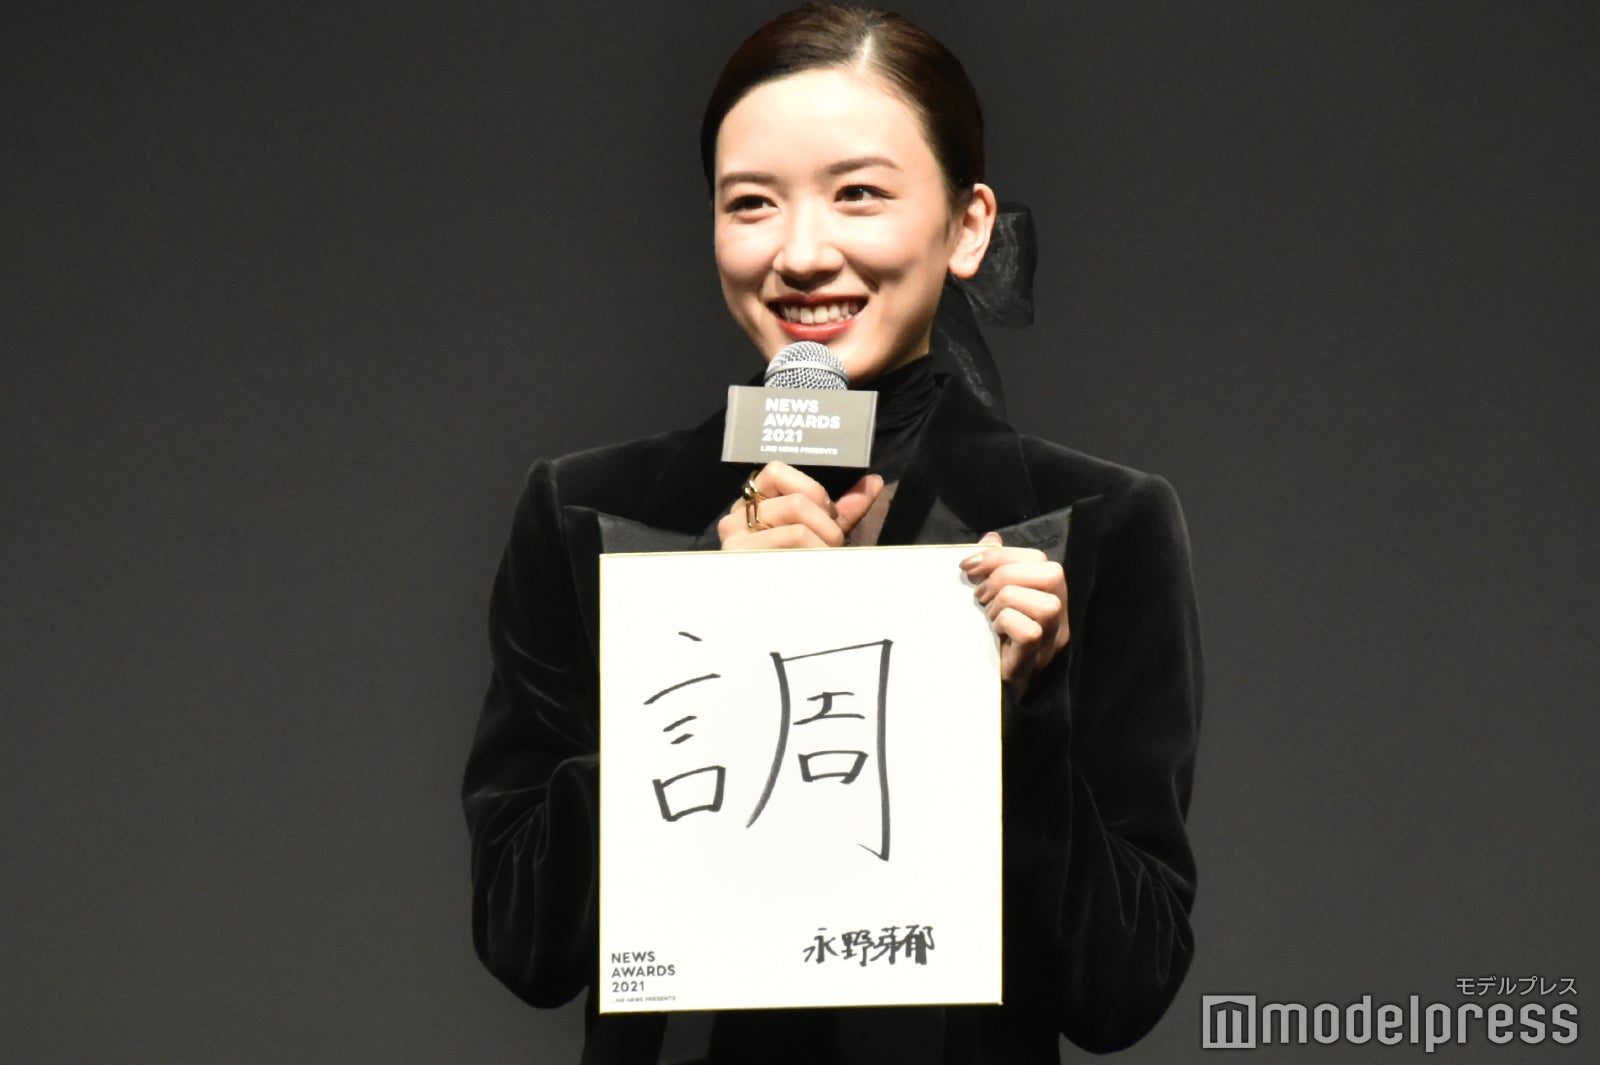 NEWS
AWARDS
2021
LINE NEWS PRESENTS
調
永野芽郁
NEWS
AWARDS
2021
LINE NEWS PRESENTS
モデルプレス
modelpress